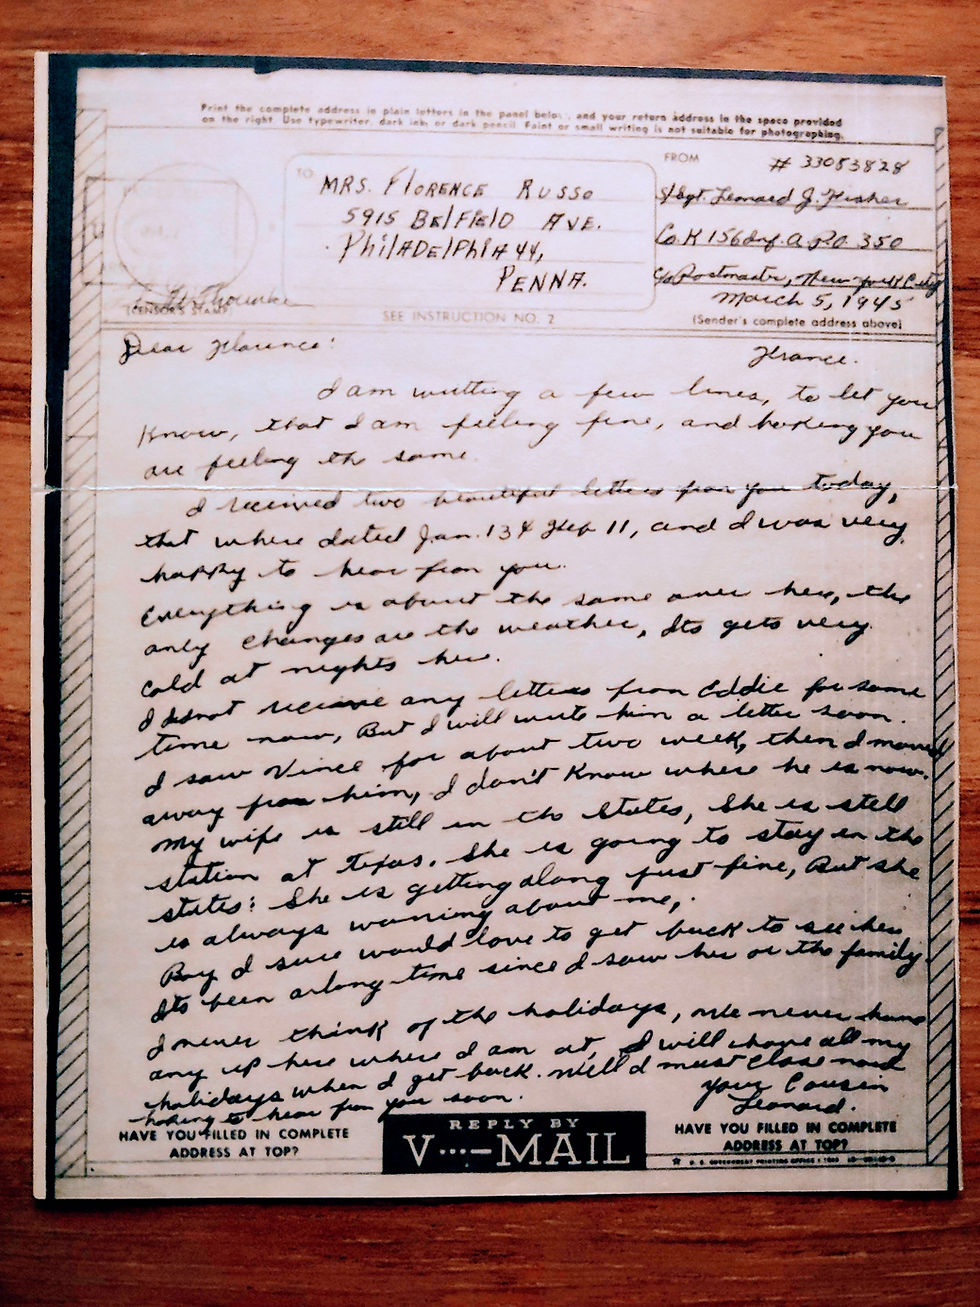 Print the complete address in plain letters in the panel below, and your return address in the space provided
on the right. Use typewriter, dark ink, or dark pencil. Faint or small writing is not suitable for photographing.
TO
MRS. FLORENCE RUSSO
5915 BELFIELD AVE.
PHILADELPHIA 44,
PENNA.
FROM
# 33083828
S/Sgt. Leonard J. Fisher
Co. K 156 Inf. A.P.O. 350
c/o Postmaster, New York City
March 5, 1945
(Sender's complete address above)
(CENSOR'S STAMP)
SEE INSTRUCTION NO. 2
Dear Florence:
France.
I am writting a few lines, to let you
Know, that I am feeling fine, and hoking you
are feeling the same.
I received two beautiful letters from you today,
that where dated Jan. 13 & Feb 11, and I was very
happy to hear from you.
Everything is about the same over here, the
only changes are the weather, Its gets very
cold at nights here.
I did not receive any letters from Eddie for some
time now, But I will write him a letter soon.
I saw Vince for about two week, then I moved
away from him, I don't Know where he is now.
My wife is still in the States, She is still
station at Texas. She is going to stay in the
states: She is getting along just fine, But she
is always worring about me,.
Boy I sure would love to get back to see her
Its been a long time since I saw her or the family.
I never think of the holidays, we never have
any up here where I am at, I will have all my
holidays when I get back. Well I must close now
hoking to hear from you soon.
your Cousin
Leonard.
HAVE YOU FILLED IN COMPLETE
ADDRESS AT TOP?
REPLY BY
V···—MAIL
HAVE YOU FILLED IN COMPLETE
ADDRESS AT TOP?
U. S. GOVERNMENT PRINTING OFFICE